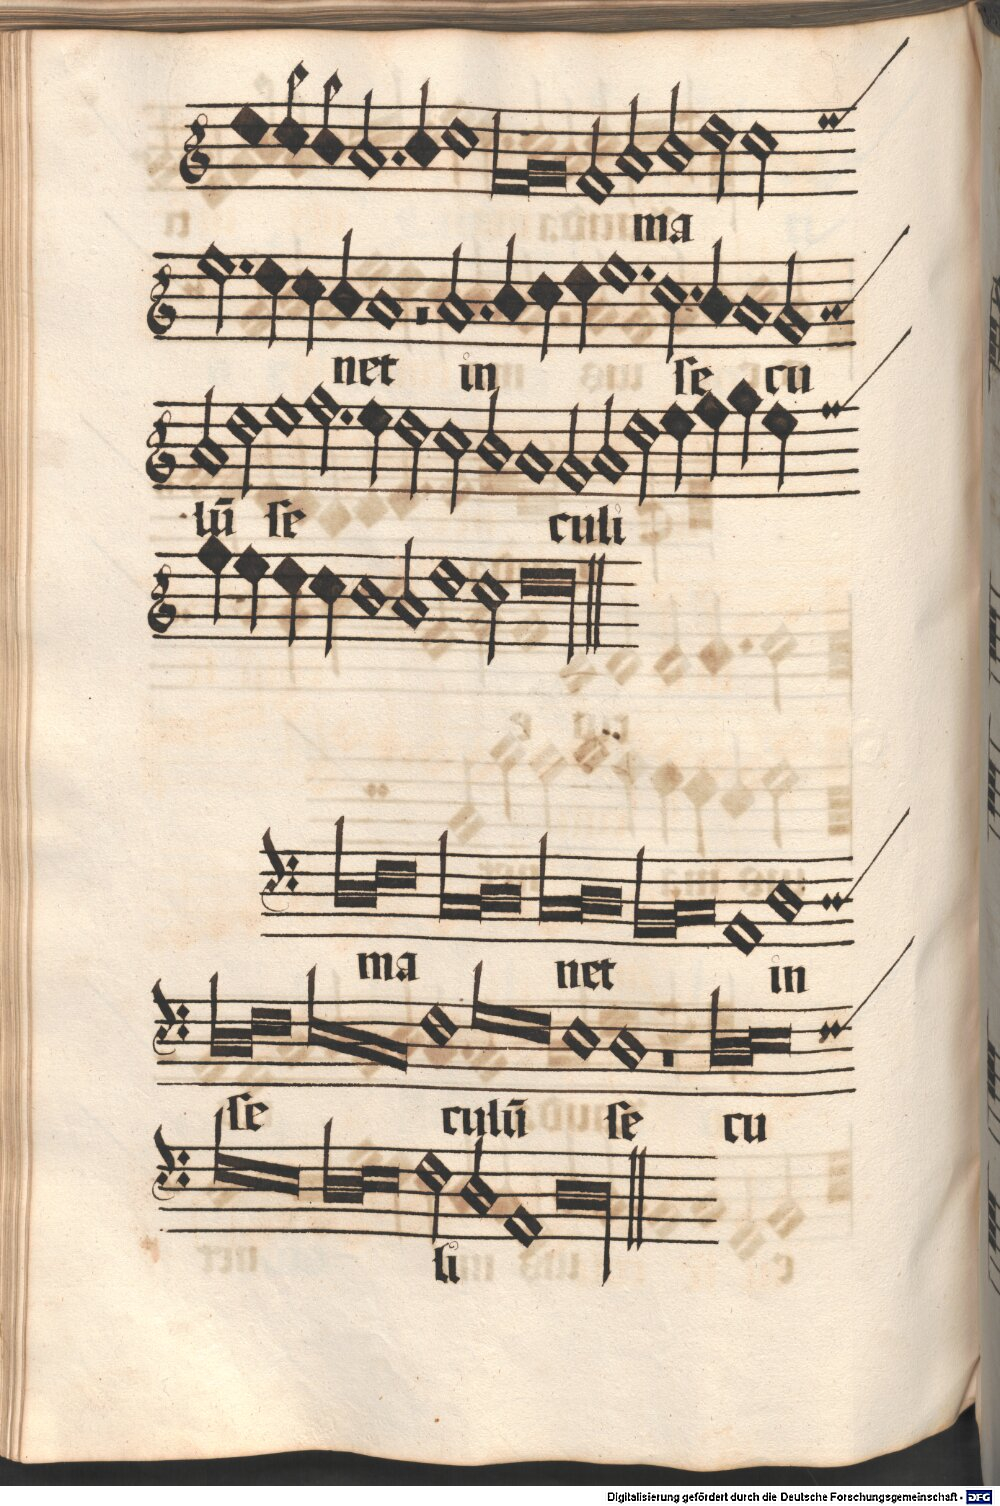 ma
net in se cu
lū se culi
ma net in
se culū se cu
li
Digitalisierung gefördert durch die Deutsche Forschungsgemeinschaft - DFG